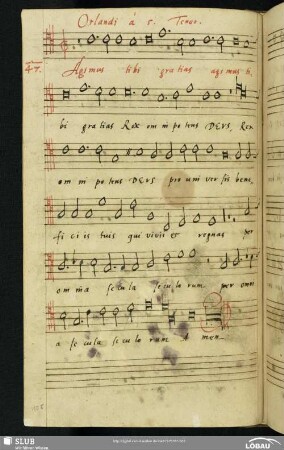 Orlandi á 5. Tenor.
47.
Agimus tibi gratias agimus ti
bi gratias Rex omnipotens DEUS, Rex
omnipotens DEUS pro universis bene
ficiis tuis qui vivis et regnas per
omnia secula seculorum per omni
a secula seculorum Amen
SLUB
Wir führen Wissen.
LÖBAU